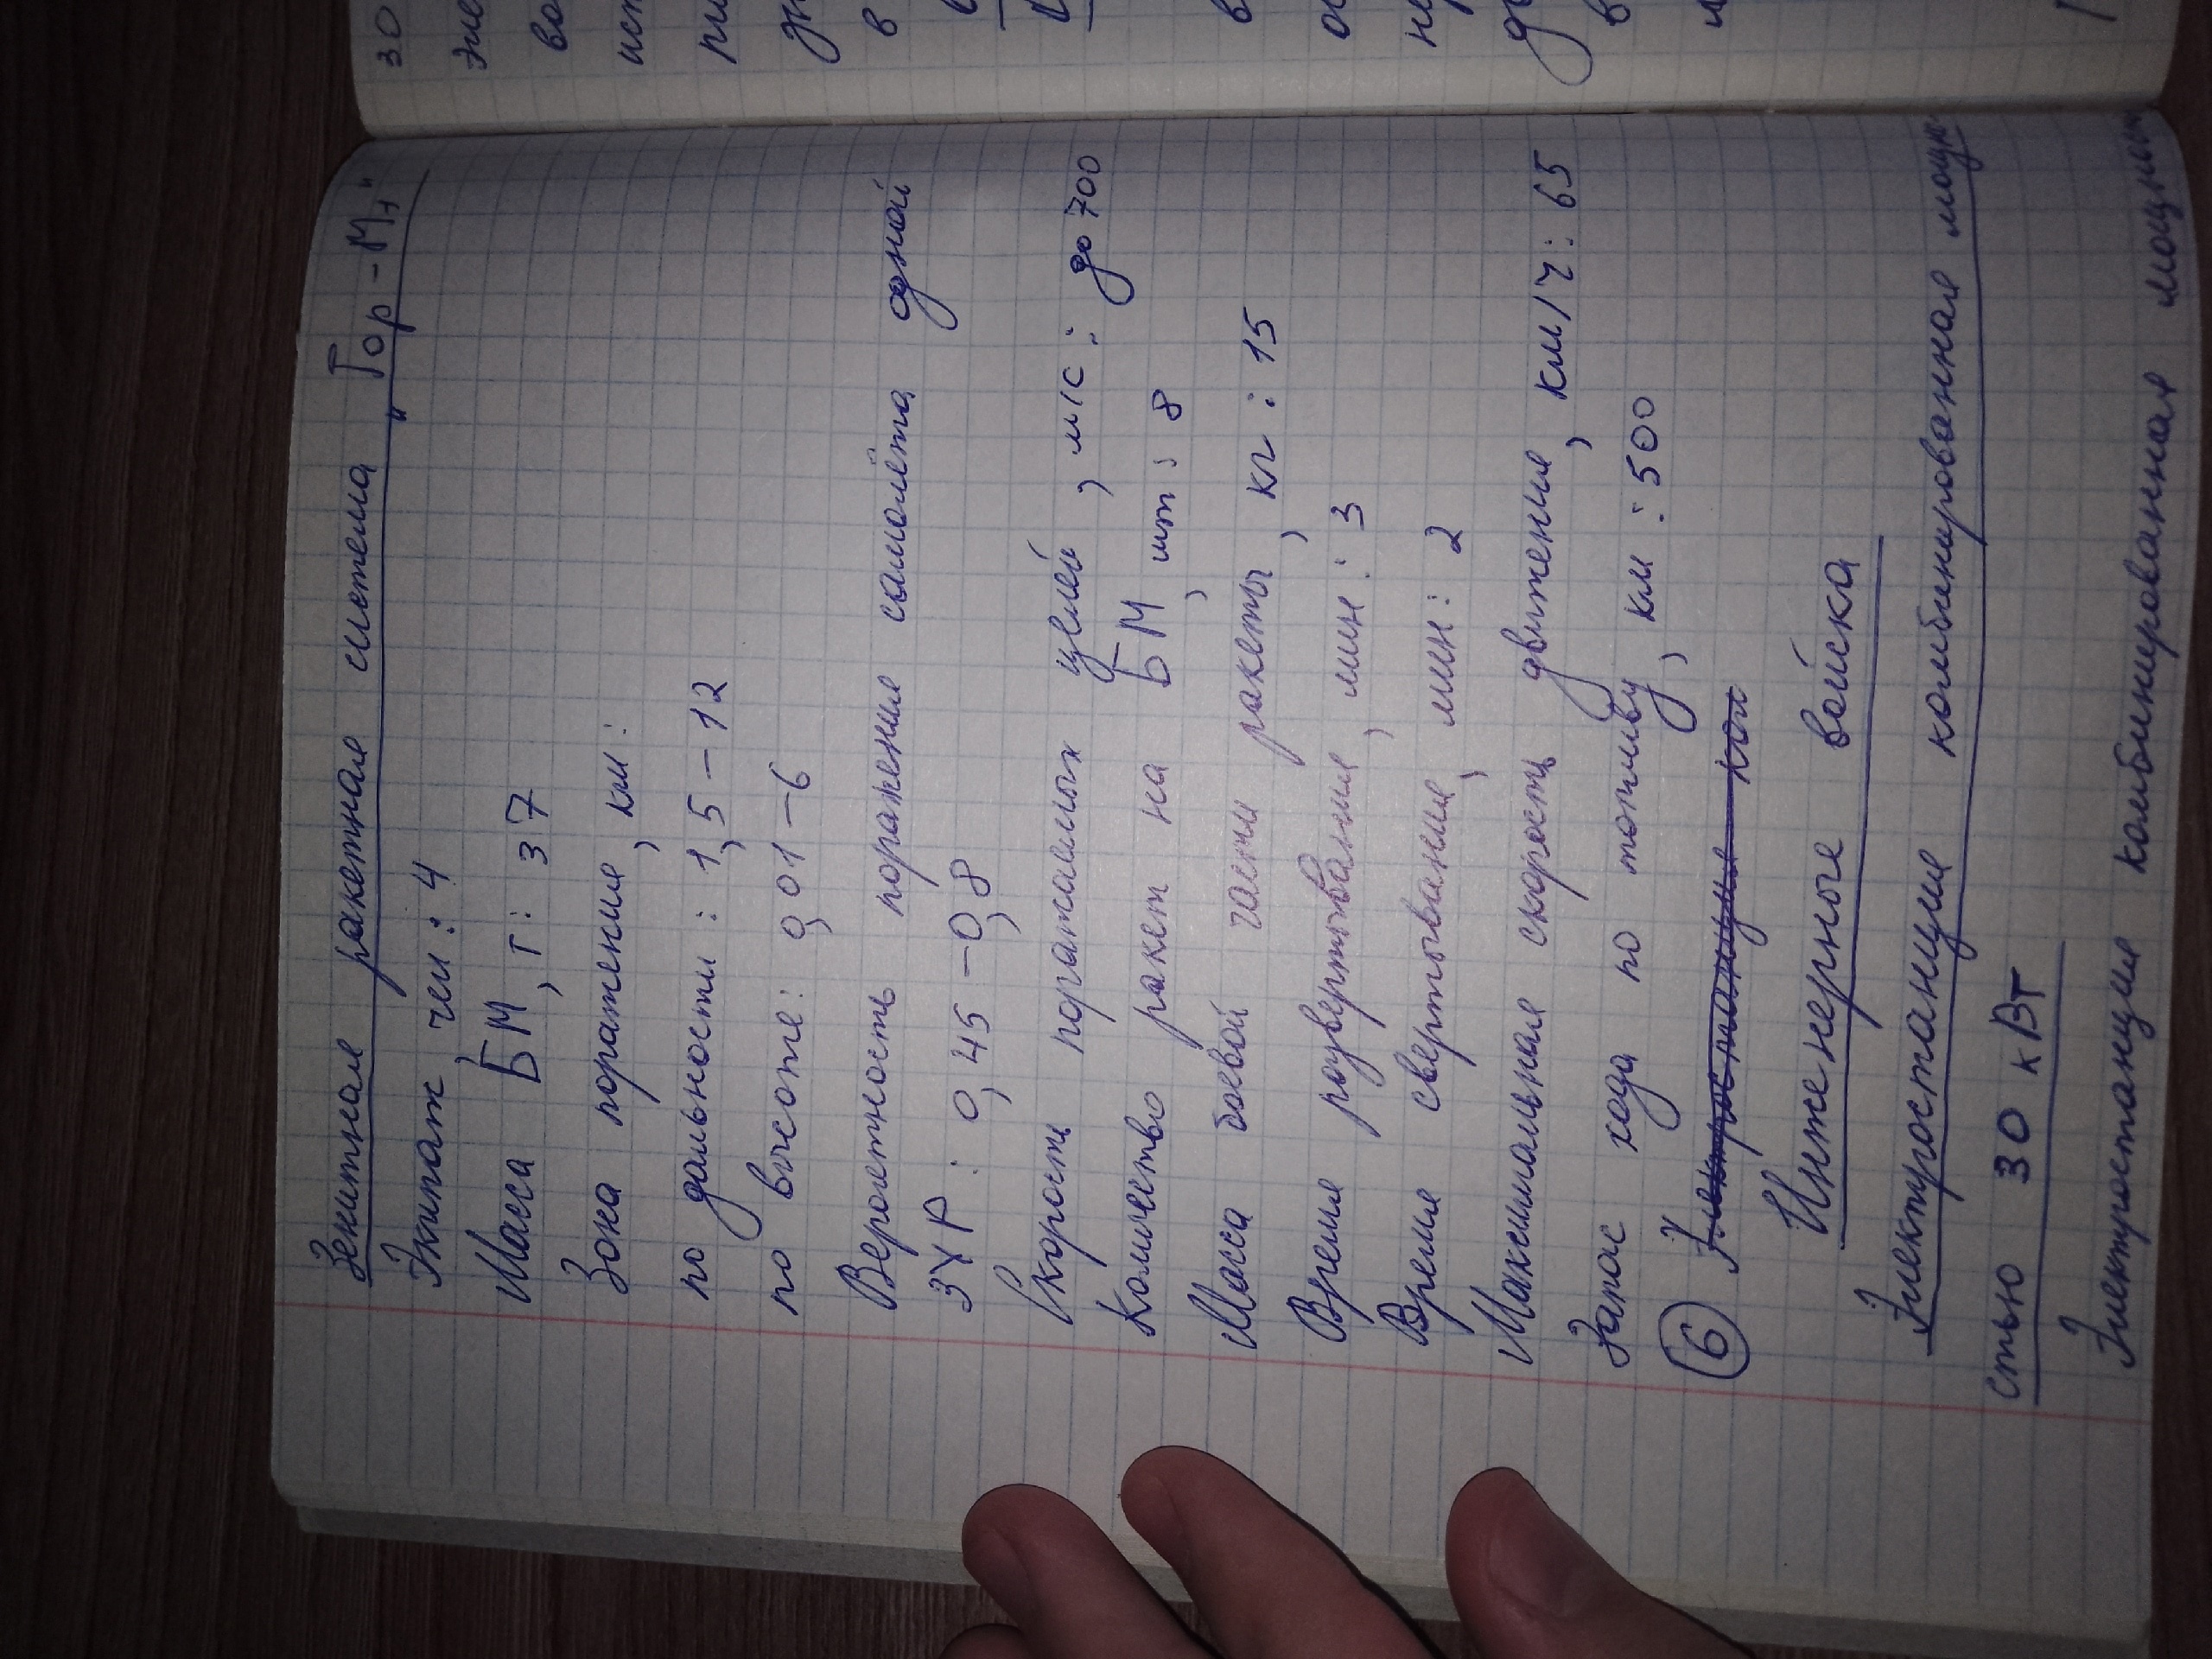 Зенитная ракетная система „Тор-М1"
Экипаж, чел: 4
Масса БМ, т: 37
Зона поражения, км:
по дальности: 1,5-12
по высоте: 0,01-6
Вероятность поражения самолёта одной
ЗУР: 0,45-0,8
Скорость поражаемых целей, м/с: до 700
Количество ракет на БМ, шт: 8
Масса боевой части ракеты, кг: 15
Время развертывания, мин: 3
Время свертывания, мин: 2
Максимальная скорость движения, км/ч: 65
Запас хода по топливу, км: 500
6 Электростанция ком
Инженерные войска
Электростанция комбинированная мощно-
стью 30 кВт
Электростанция комбинированная мощность
30